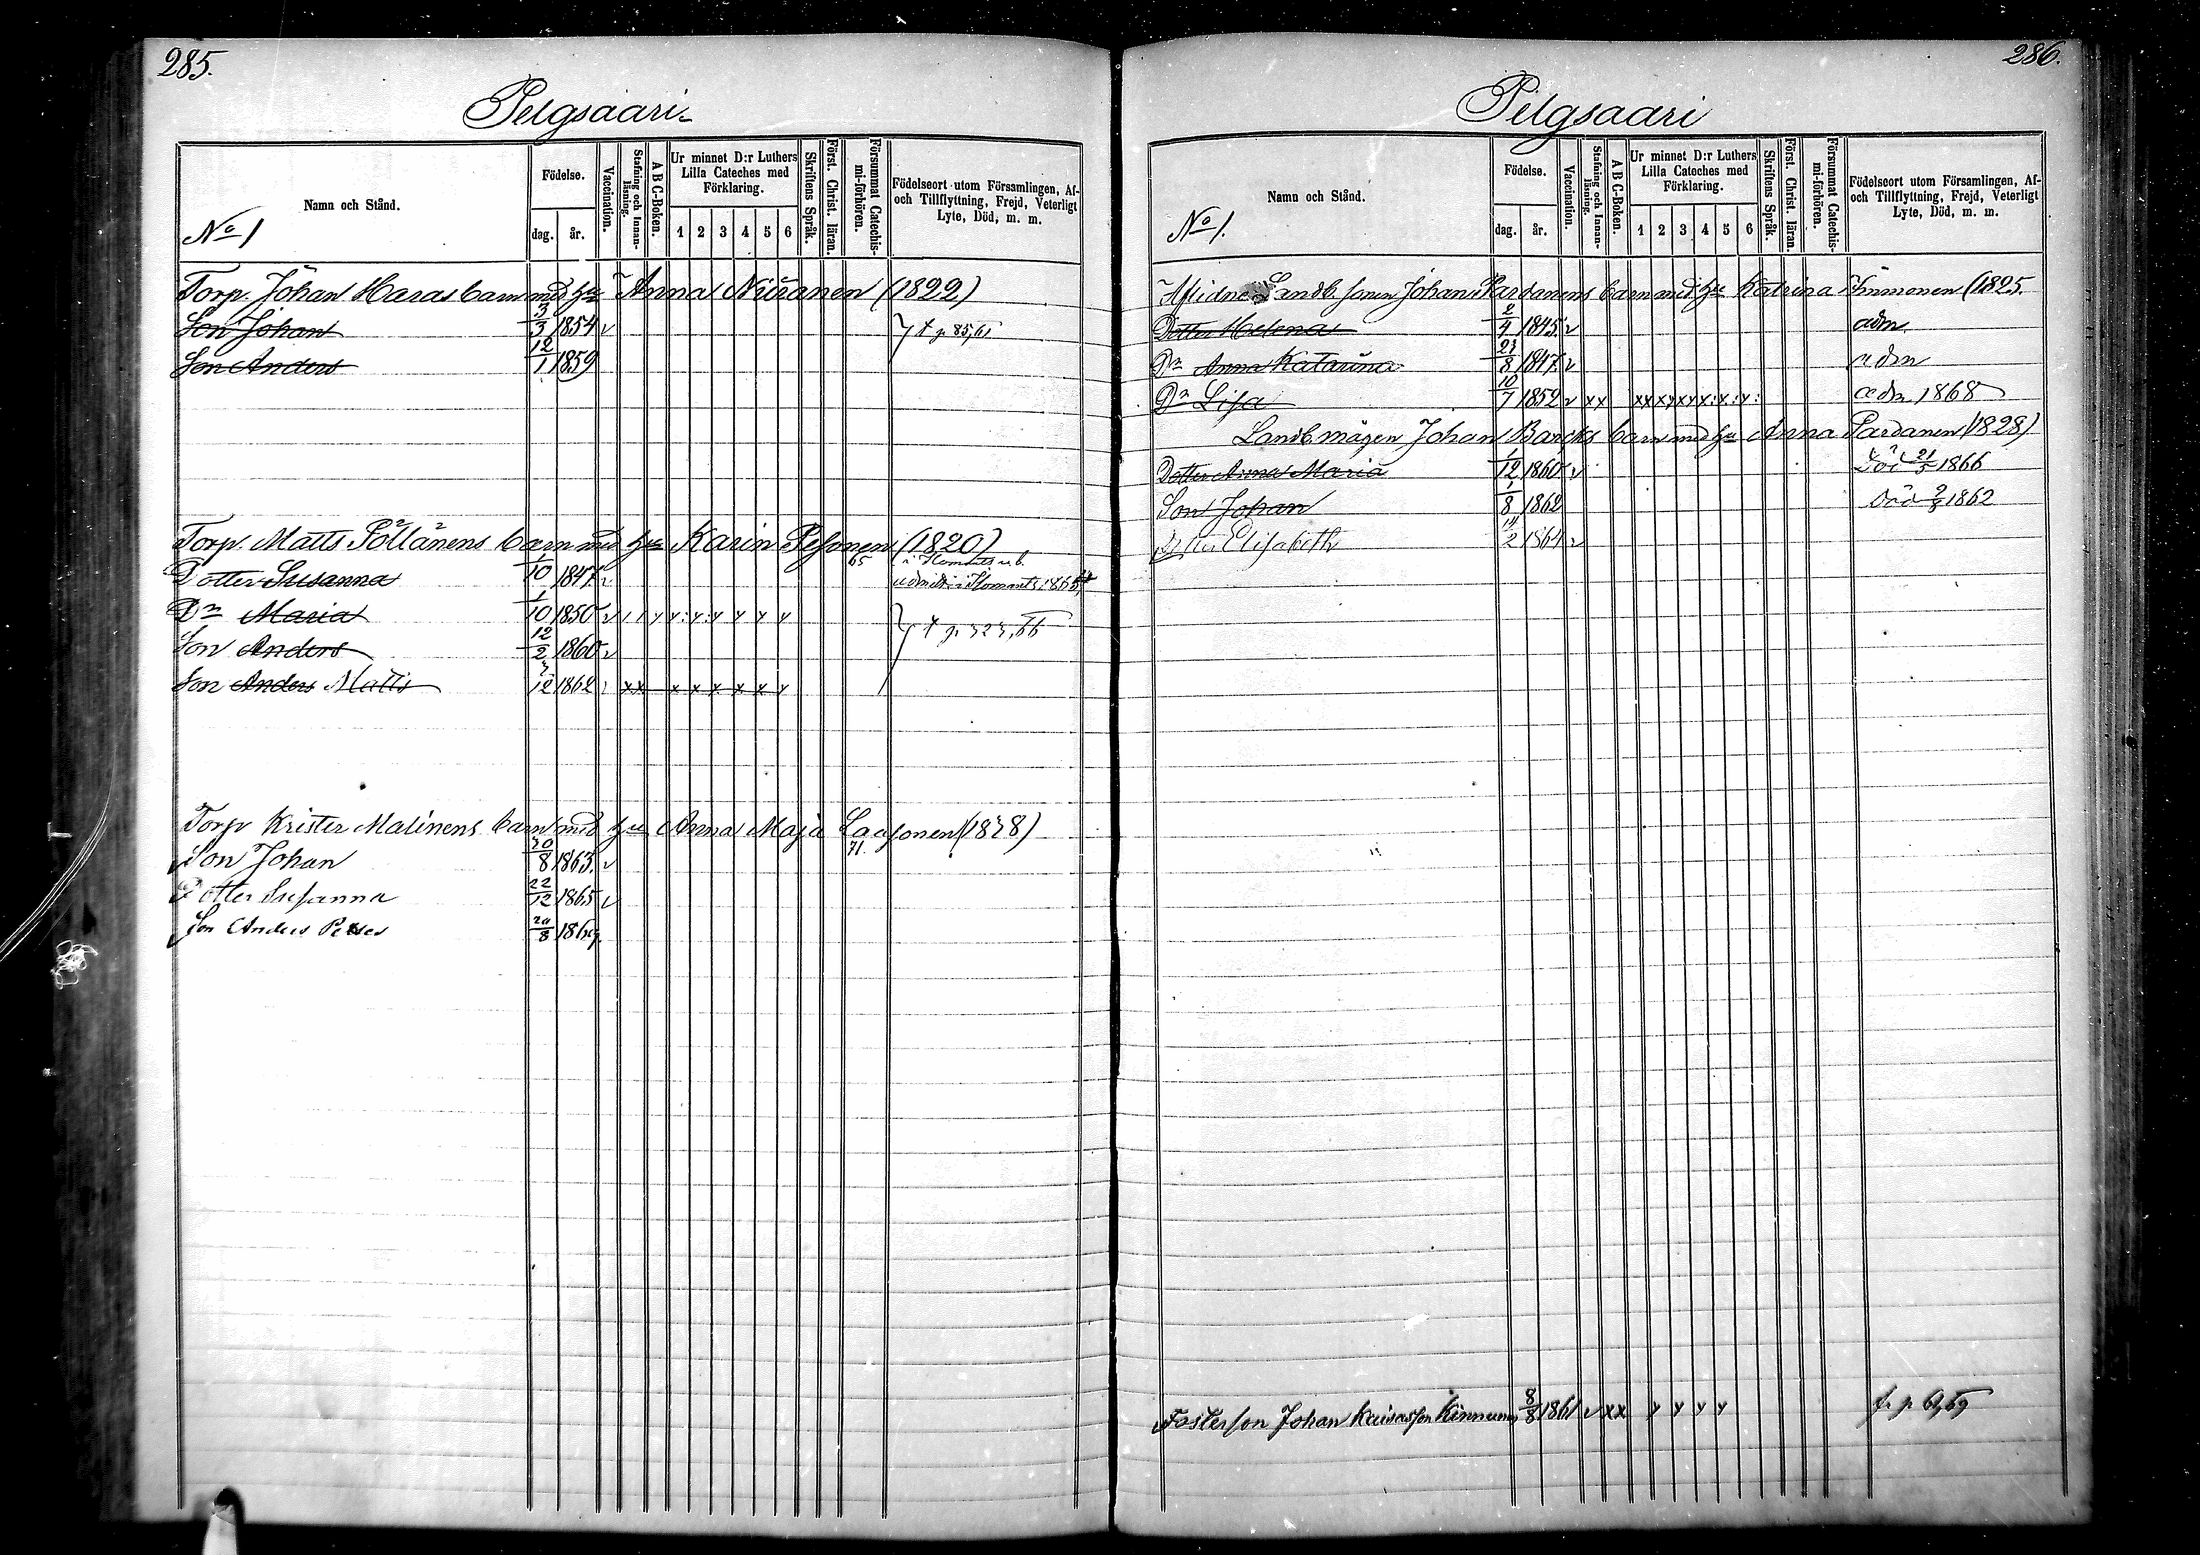 285.
Pelgsaari
Namn och Stånd.
Födelse.
dag. år.
Vaccination.
Stafning och Innanläsning.
A B C-Boken.
Ur minnet D:r Luthers Lilla Cateches med Förklaring.
1 2 3 4 5 6
Skriftens Språk.
Först. Christ. läran.
Försummat Catechismi-förhören.
Födelseort utom Församlingen, Af- och Tillflyttning, Frejd, Veterligt Lyte, Död, m. m.
No 1
Torp. Johan Haras barn med hu Anna Niiranen (1822)
Son Johan 3/3 1854 v † p 85,61
Son Anders 12/1 1859
Torp. Matts Pöllänens barn med hu Karin Pesonen (1820)
Dotter Susanna /10 1847 v 65 admitt. i Ilomants 1865
Dn Maria 1/10 1850 v † p. 323,66
Son Anders 12/2 1860 v
Son Anders Matts /12 1862 v x x x x x x x y
Torp Krister Malinens barn med hu Anna Maja Laasonen (1838)
Son Johan 30/8 1863. v 71.
Dotter Susanna 22/12 1865 v
Son Anders Petter 20/8 1869.
286.
Pelgsaari
Namn och Stånd.
Födelse.
dag. år.
Vaccination.
Stafning och Innanläsning.
A B C-Boken.
Ur minnet D:r Luthers Lilla Cateches med Förklaring.
1 2 3 4 5 6
Skriftens Språk.
Först. Christ. läran.
Försummat Catechismi-förhören.
Födelseort utom Församlingen, Af- och Tillflyttning, Frejd, Veterligt Lyte, Död, m. m.
No 1.
Aflidne Landb. sonen Johan Pardanens barn med hu Katrina Simmonen (1825.
Dotter Helena 2/4 1845. v adm
Dn Anna Katarina 23/8 1847. v adm
Dn Lisa 10/7 1852 v adm 1868
Landb mågen Johan Barcks barn med hu Anna Pardanen (1828)
Dotter Anna Maria 1/12 1860 v död 21/5 1866
Son Johan 1/8 1862 död 1862
Dotter Elisabeth 14/2 1864 v
Fosterson Johan Kaisasson Kinnunen 8/8 1861 v x x y y y y f. p 61,69